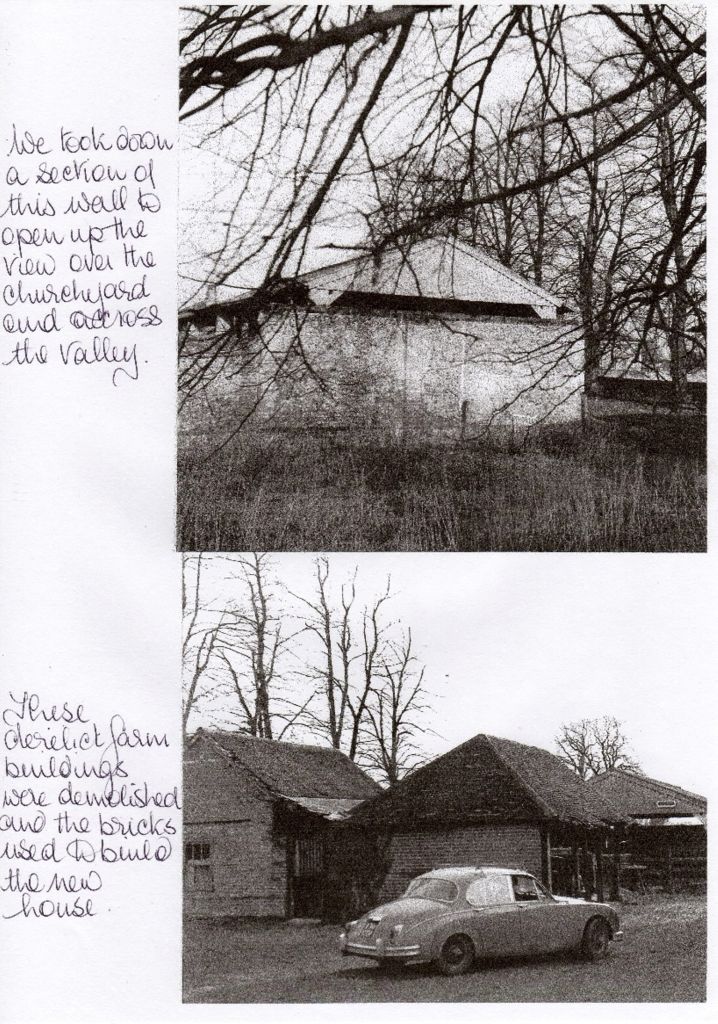 We took down
a section of
this wall to
open up the
view over the
churchyard
and across
the valley.
These
derelict farm
buildings
were demolished
and the bricks
used to build
the new
house.